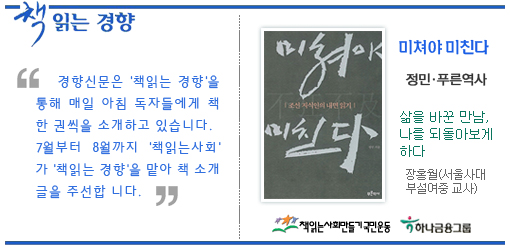 책 읽는 경향
경향신문은 '책읽는 경향'을
통해 매일 아침 독자들에게 책
한 권씩을 소개하고 있습니다.
7월부터 8월까지 '책읽는사회'
가 '책읽는 경향'을 맡아 책 소개
글을 주선합 니다.
미쳐야
조선 지식인의 내면 읽기
미친다
푸른역사
미쳐야 미친다
정민·푸른역사
삶을 바꾼 만남,
나를 되돌아보게
하다
장홍월(서울사대
부설여중 교사)
책읽는사회만들기국민운동
하나금융그룹